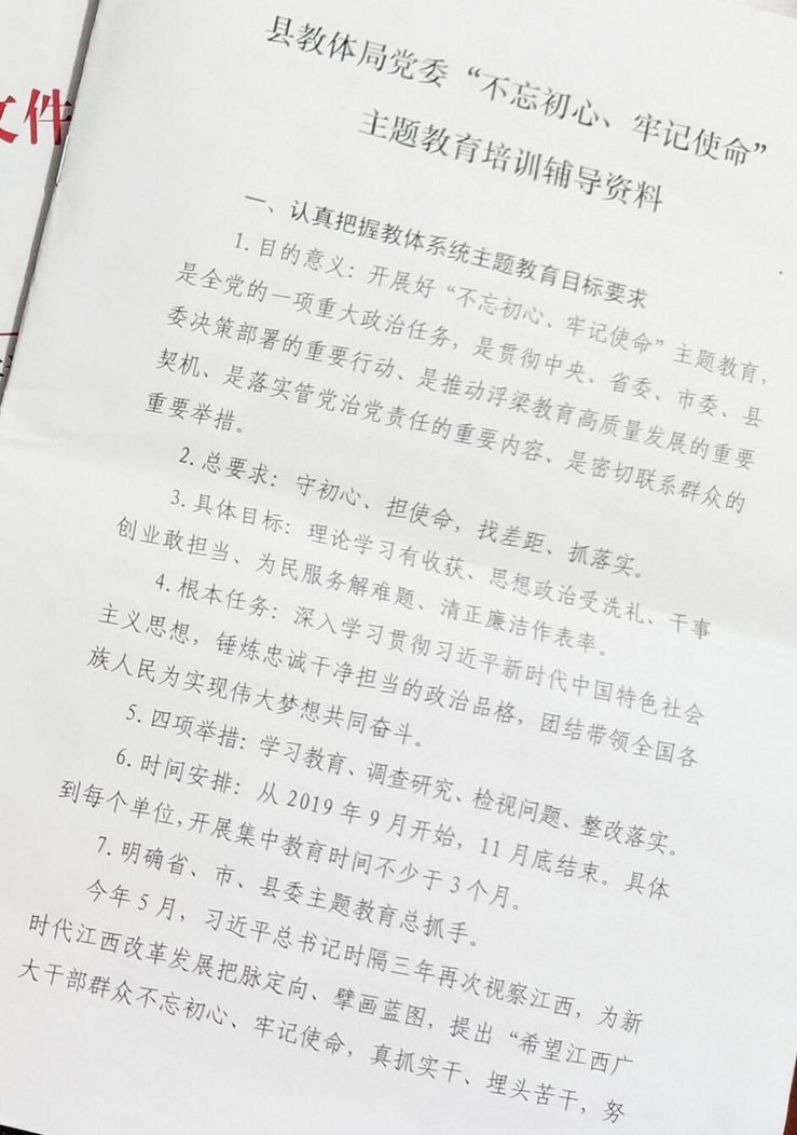 文件
县教体局党委“不忘初心、牢记使命”
主题教育培训辅导资料
一、认真把握教体系统主题教育目标要求
1. 目的意义：开展好“不忘初心、牢记使命”主题教育，
是全党的一项重大政治任务，是贯彻中央、省委、市委、县
委决策部署的重要行动、是推动浮梁教育高质量发展的重要
契机、是落实管党治党责任的重要内容、是密切联系群众的
重要举措。
2. 总要求：守初心、担使命，找差距、抓落实。
3. 具体目标：理论学习有收获、思想政治受洗礼、干事
创业敢担当、为民服务解难题、清正廉洁作表率。
4. 根本任务：深入学习贯彻习近平新时代中国特色社会
主义思想，锤炼忠诚干净担当的政治品格，团结带领全国各
族人民为实现伟大梦想共同奋斗。
5. 四项举措：学习教育、调查研究、检视问题、整改落实。
6. 时间安排：从 2019 年 9 月开始，11 月底结束。具体
到每个单位，开展集中教育时间不少于 3 个月。
7. 明确省、市、县委主题教育总抓手。
今年 5 月，习近平总书记时隔三年再次视察江西，为新
时代江西改革发展把脉定向、擘画蓝图，提出“希望江西广
大干部群众不忘初心、牢记使命，真抓实干、埋头苦干，努